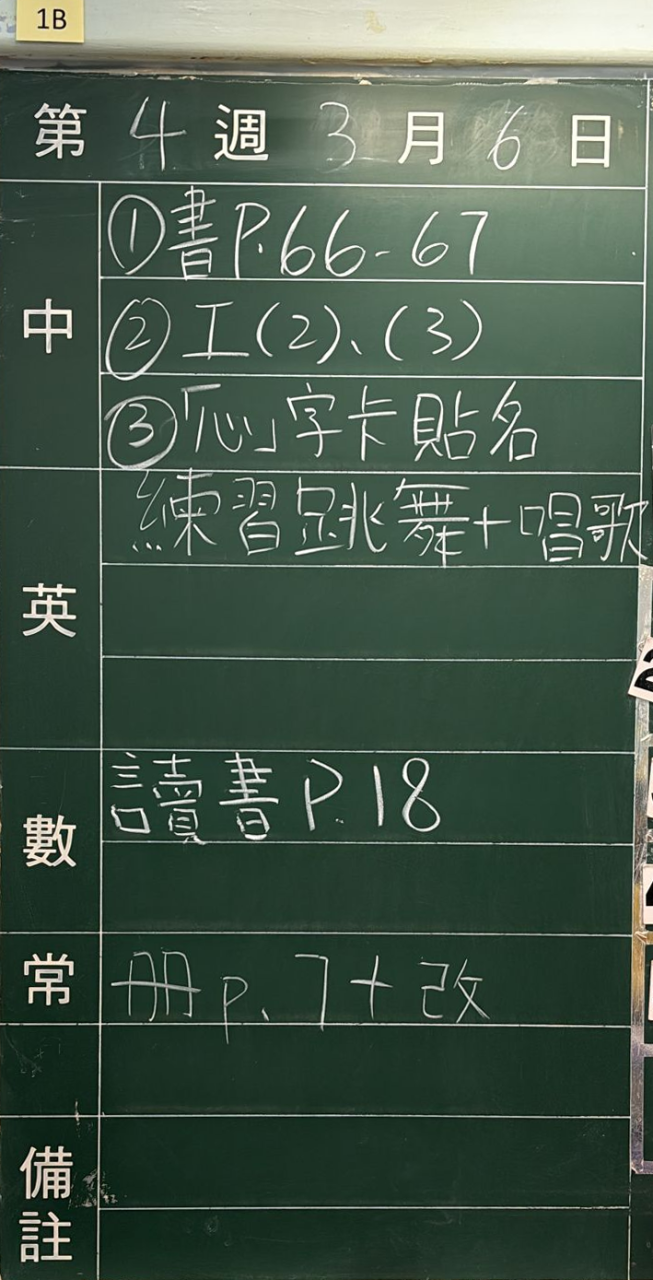 1B
第 4 週 3 月 6 日
中
①書P.66-67
②工(2)、(3)
③「心」字卡貼名
英
練習跳舞+唱歌
數
讀書P.18
常
冊p.7+改
備註
2